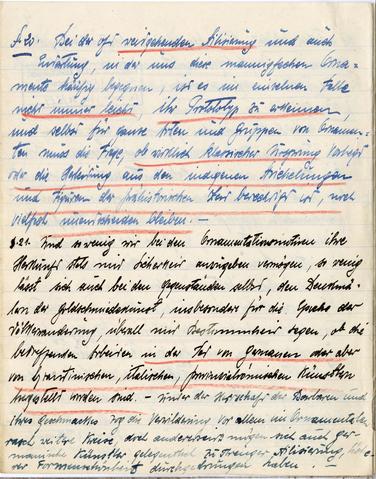 S. 20. Bei der oft weitgehenden Stilisierung und auch
Entartung, in der uns diese mannigfachen Orna-
mente häufig begegnen, ist es im einzelnen Falle
nicht immer leicht, ihr Prototyp zu erkennen,
und selbst für ganze Arten und Gruppen von Ornamen-
ten muss die Frage, ob wirklich klassischer Ursprung vorliegt
oder die Herleitung aus den indigenen Strichelungen
und Figuren der prähistorischen Zeit berechtigt ist, noch
vielfach unentschieden bleiben. —
S. 21. Und so wenig wir bei den Ornamentationsmotiven ihre
Herkunft stets mit Sicherheit anzugeben vermögen, so wenig
lässt sich auch bei den Gegenständen selbst, den Denkmä-
lern der Goldschmiedekunst, insbesondere für die Epoche der
Völkerwanderung, überall mit Bestimmtheit sagen, ob die
betreffenden Arbeiten in der Tat von Germanen oder aber
von byzantinischen, italischen, provinzialrömischen Künstlern
hergestellt worden sind. — Unter der Herrschaft der Barbaren und
ihres Geschmackes zog die Verwilderung vor allem im Ornamentalen
rasch weitere Kreise, doch andererseits mögen sich auch ger-
manische Künstler gelegentlich zu strenger Stilisierung,
der Formensicherheit durchgedrungen haben.